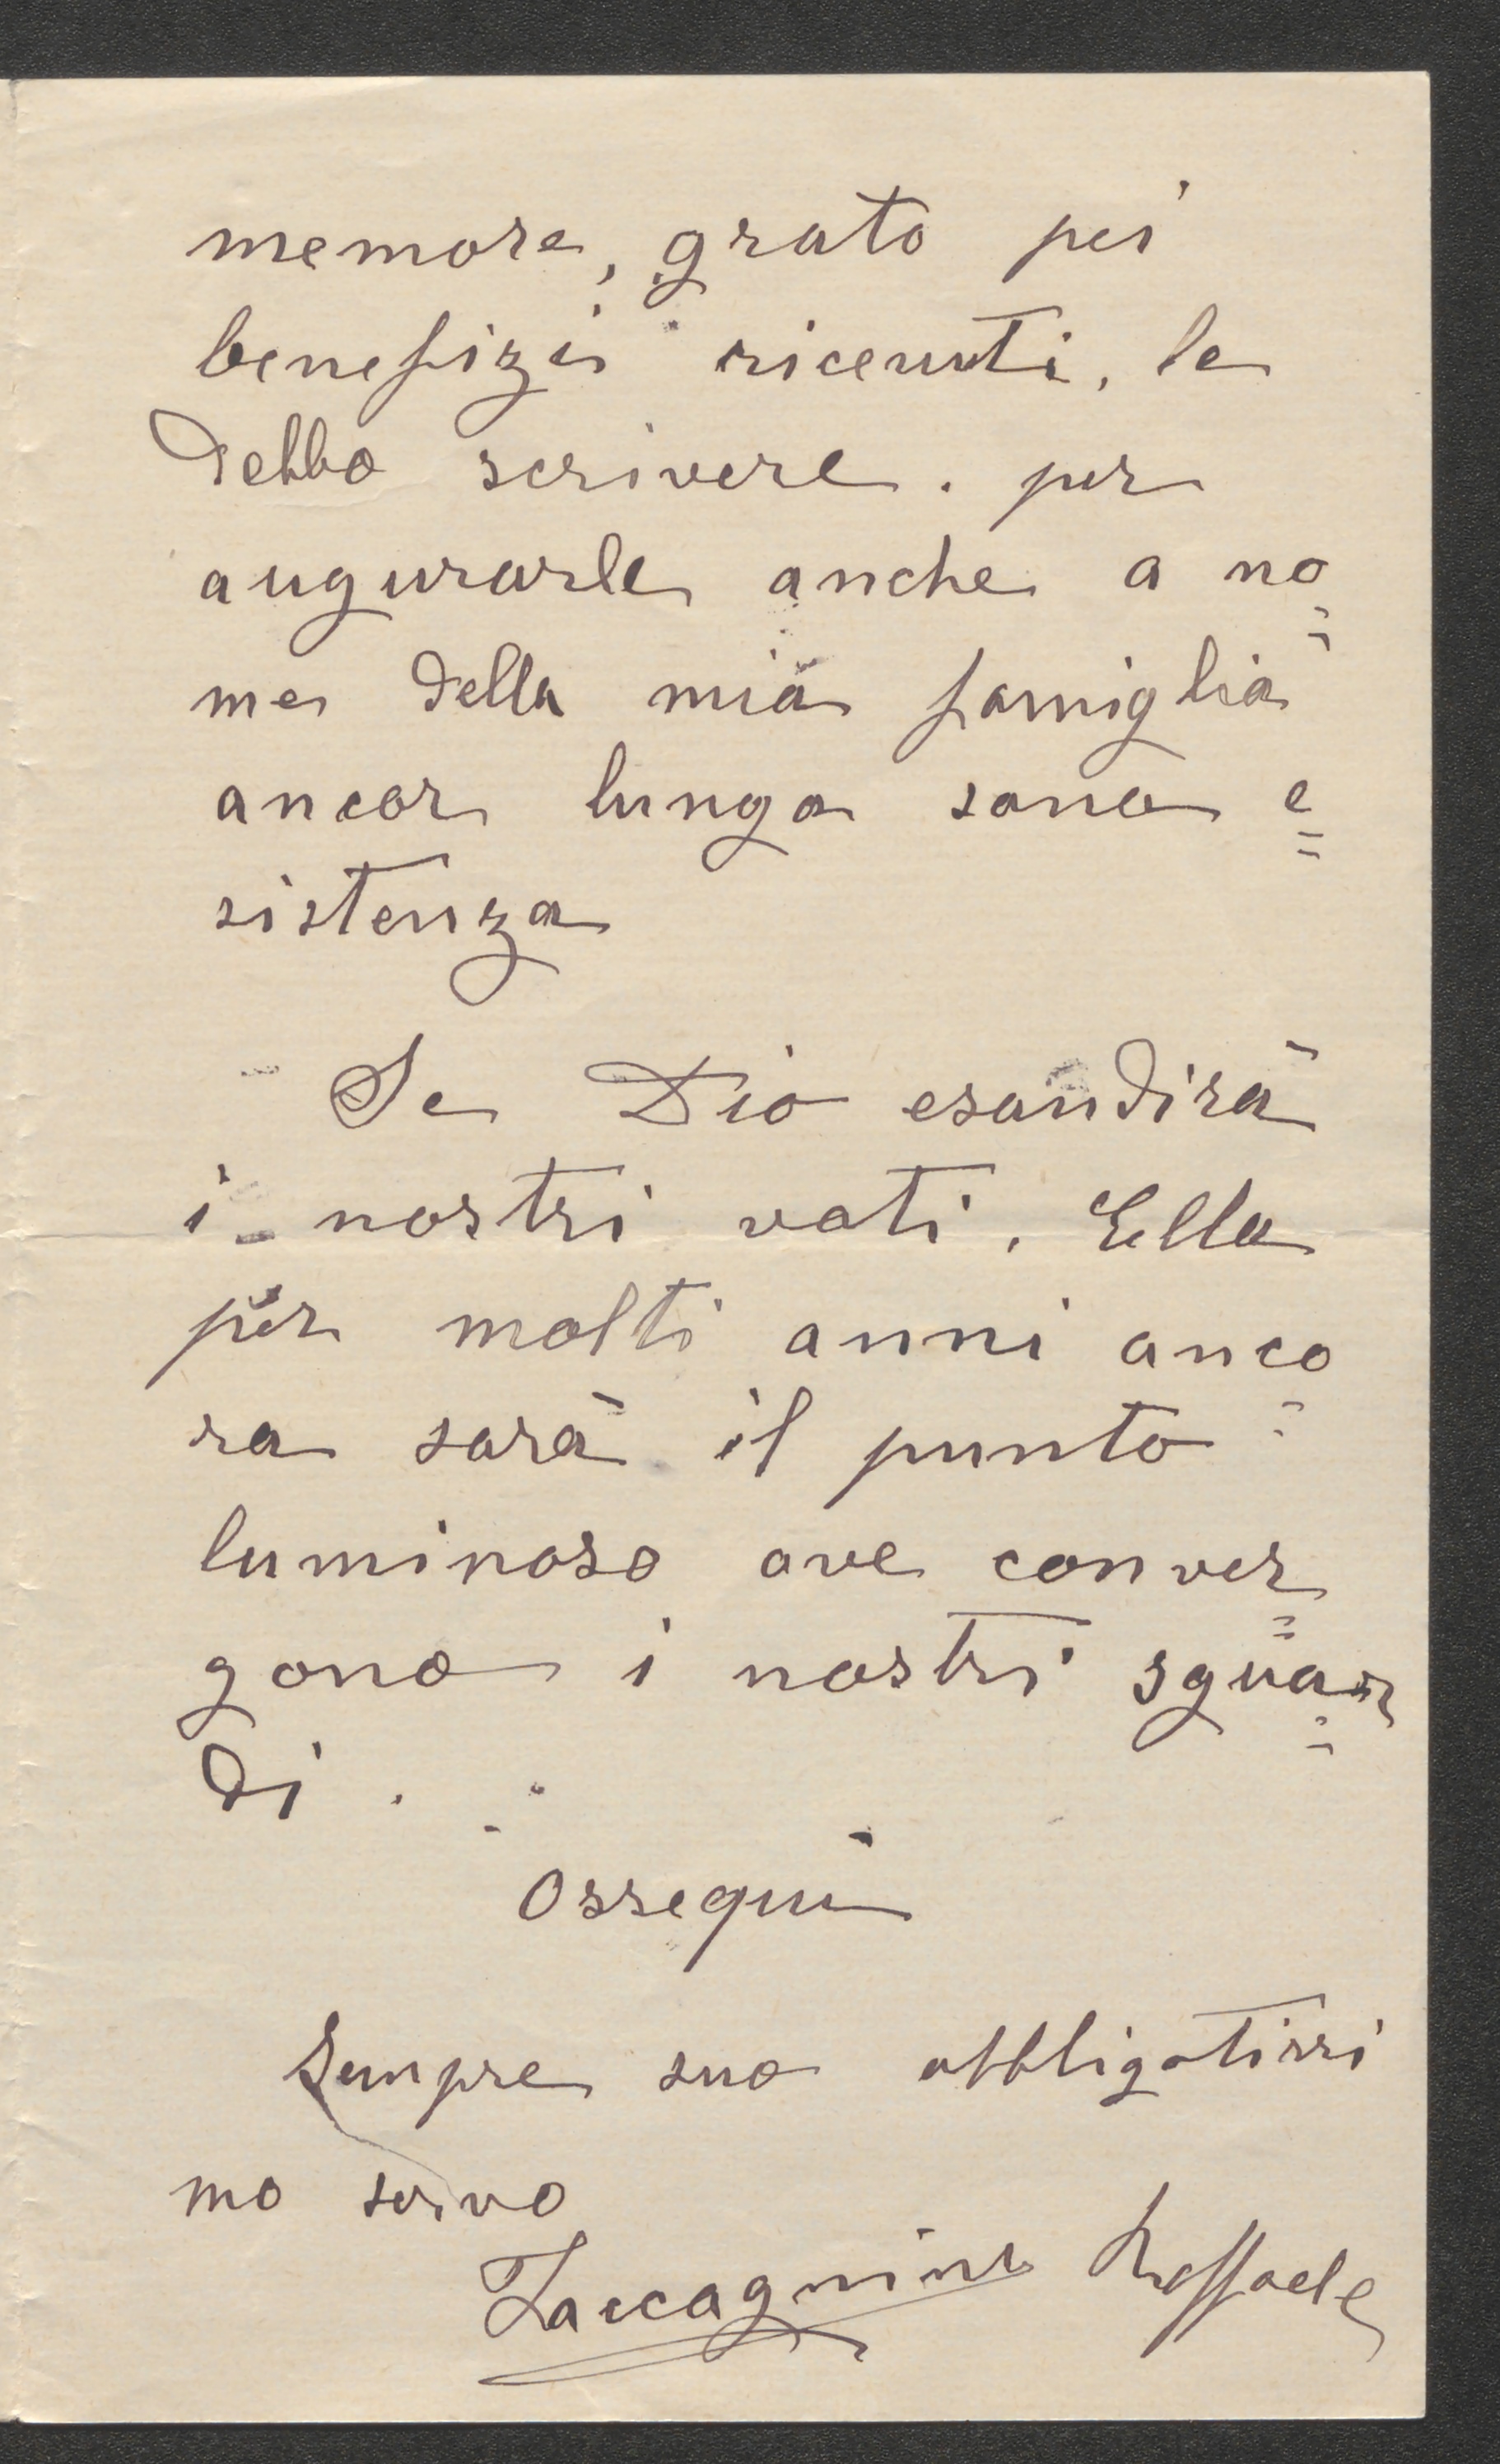 memore, grato pei
benefizi ricevuti, le
debbo scrivere. per
augurarle anche a no=
me della mia famiglia
ancor lunga sana e=
sistenza
Se Dio esaudirà
i nostri voti, Ella
per molti anni anco=
ra sarà il punto
luminoso ove conver=
gono i nostri sguar=
di.
Ossequi
Sempre suo obbligatissi
mo servo
Zaccagnini Raffaele